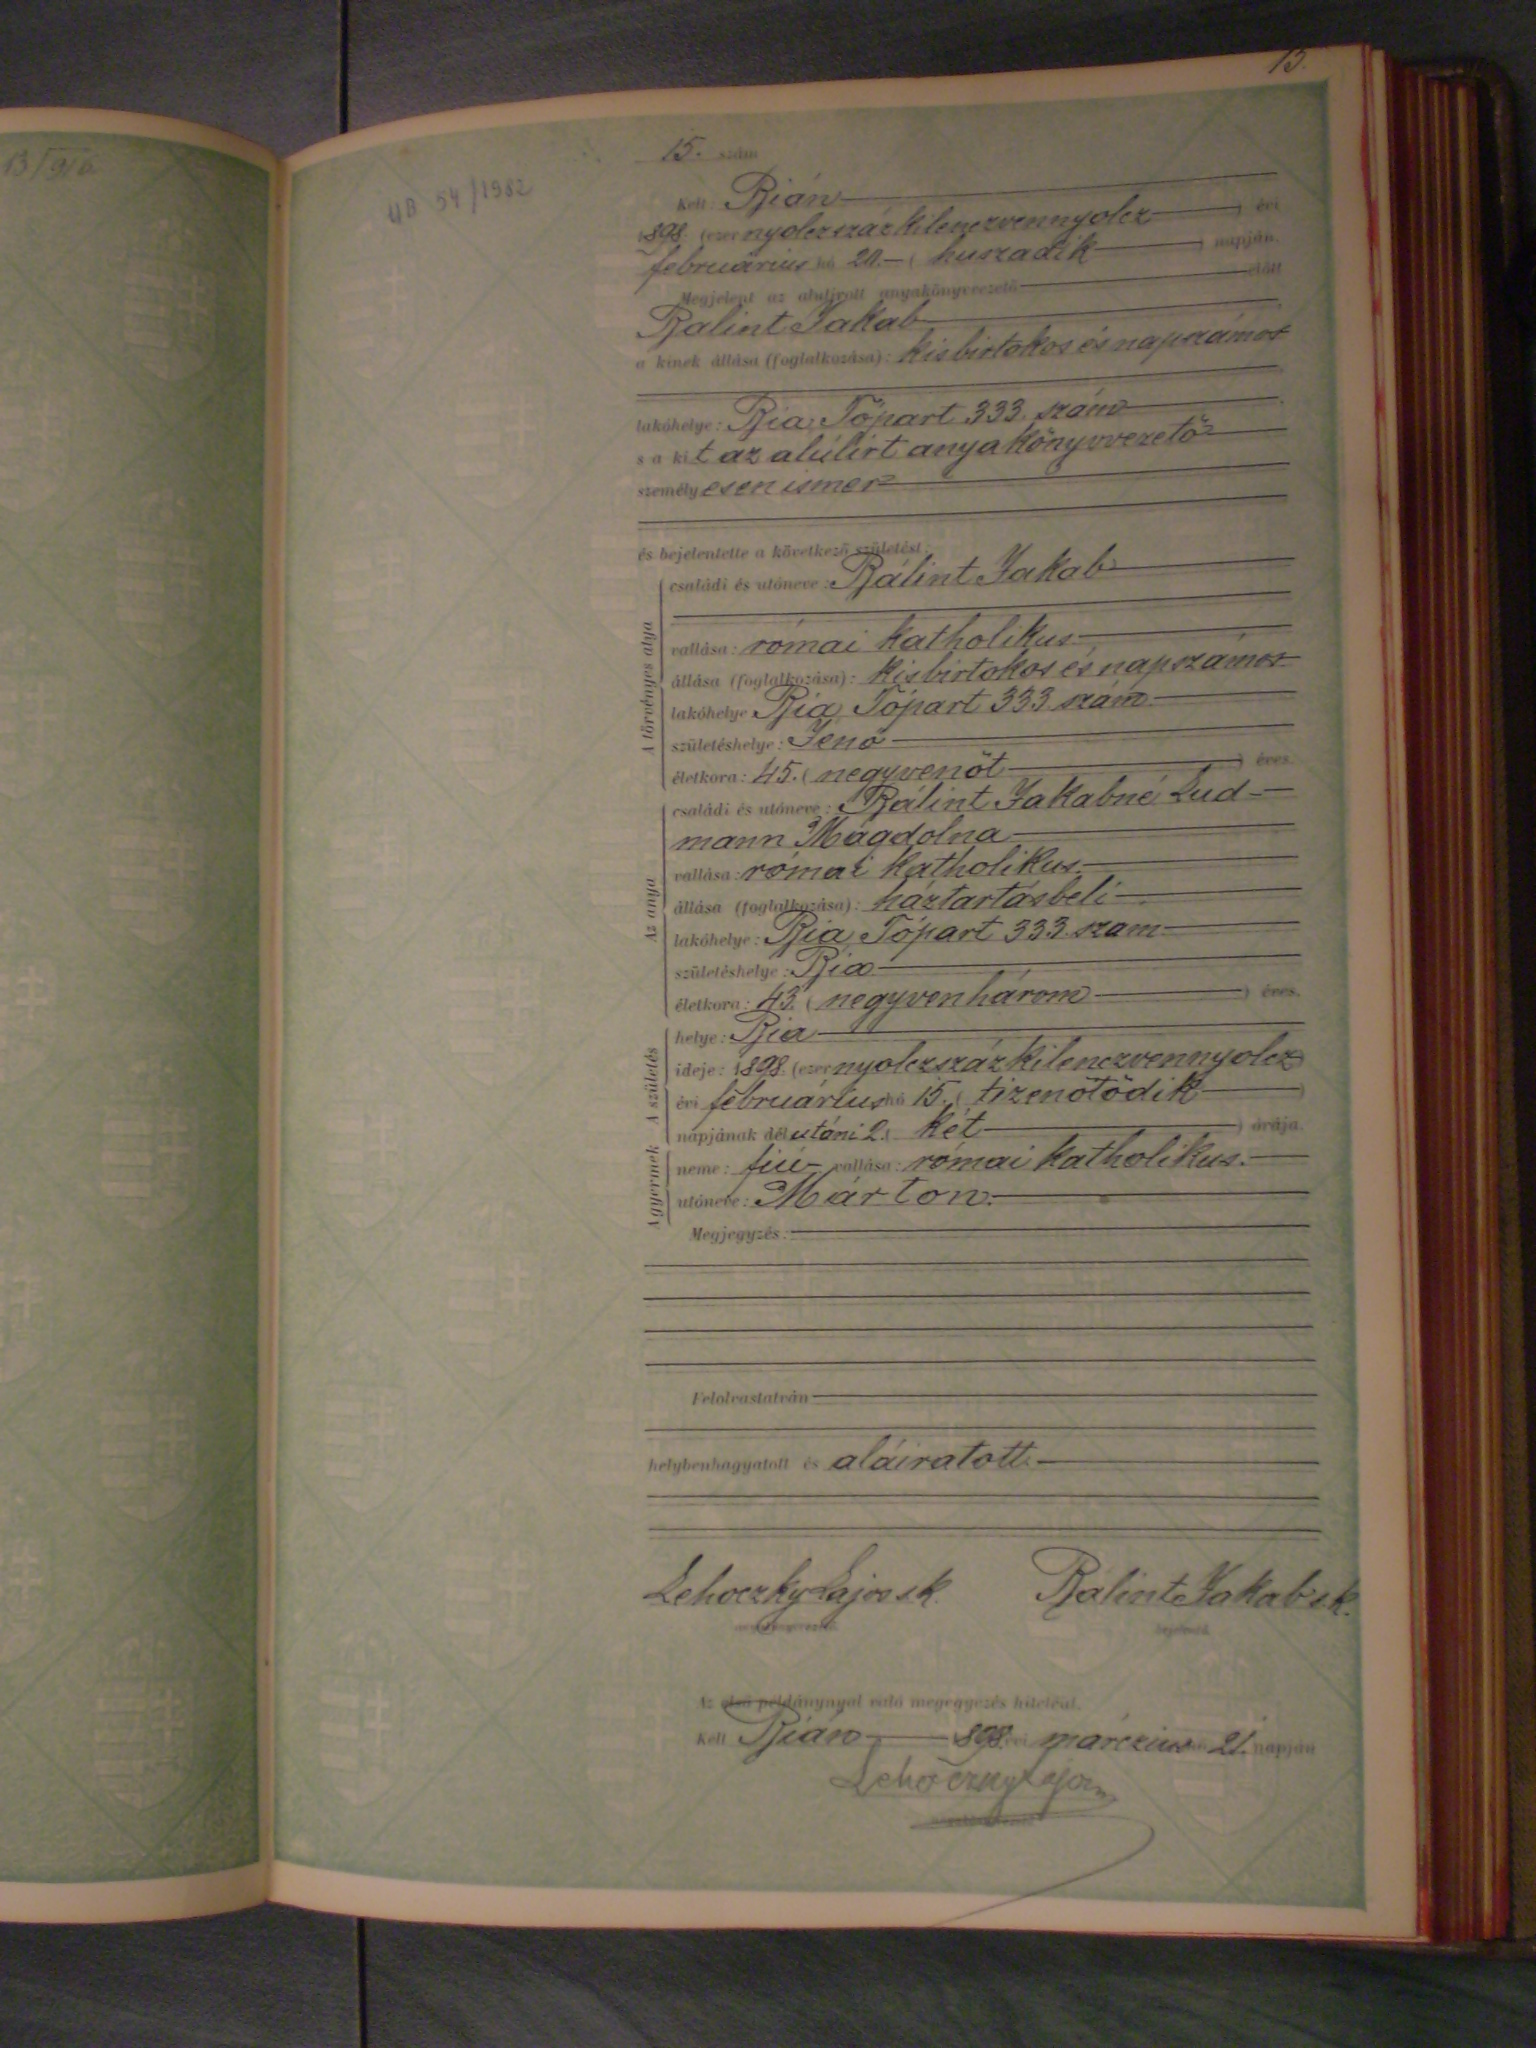 15.
13/9/6
UB 54/1982
15. szám
Kelt: Bián
1898. (ezer nyolczszázkilenczvennyolcz ) évi
februárius hó 20. ( huszadik ) napján.
Megjelent az alulirott anyakönyvvezető előtt
Balint Jakab
a kinek állása (foglalkozása): kisbirtokos és napszámos
lakóhelye: Bia Tópart 333. szám
s a kit az alúlírt anyakönyvvezető
személyesen ismer
és bejelentette a következő születést:
A törvényes atya
családi és utóneve: Bálint Jakab
vallása: római katholikus
állása (foglalkozása): kisbirtokos és napszámos
lakóhelye Bia Tópart 333 szám
születéshelye: Jenő
életkora: 45. ( negyvenöt ) éves.
Az anya
családi és utóneve: Bálint Jakabné Lud-
mann Magdolna
vallása: római katholikus.
állása (foglalkozása): háztartásbeli
lakóhelye: Bia Tópart 333. szam
születéshelye: Bia
életkora: 43. ( negyvenhárom ) éves.
A születés
helye: Bia
ideje: 1898. (ezer nyolczszázkilenczvennyolcz)
évi februárius hó 15. ( tizenötödik )
napjának dél utáni 2. ( két ) órája.
A gyermek
neme: fiú vallása: római katholikus.
utóneve: Márton.
Megjegyzés:
Felolvastatván
helybenhagyatott és aláiratott.
Lehoczky Lajos sk. Balint Jakab sk.
anyakönyvvezető. bejelentő.
Az első példánynyal való megegyezés hiteléül.
Kelt Bián 1898. évi márczius hó 21. napján
Lehoczky Lajos